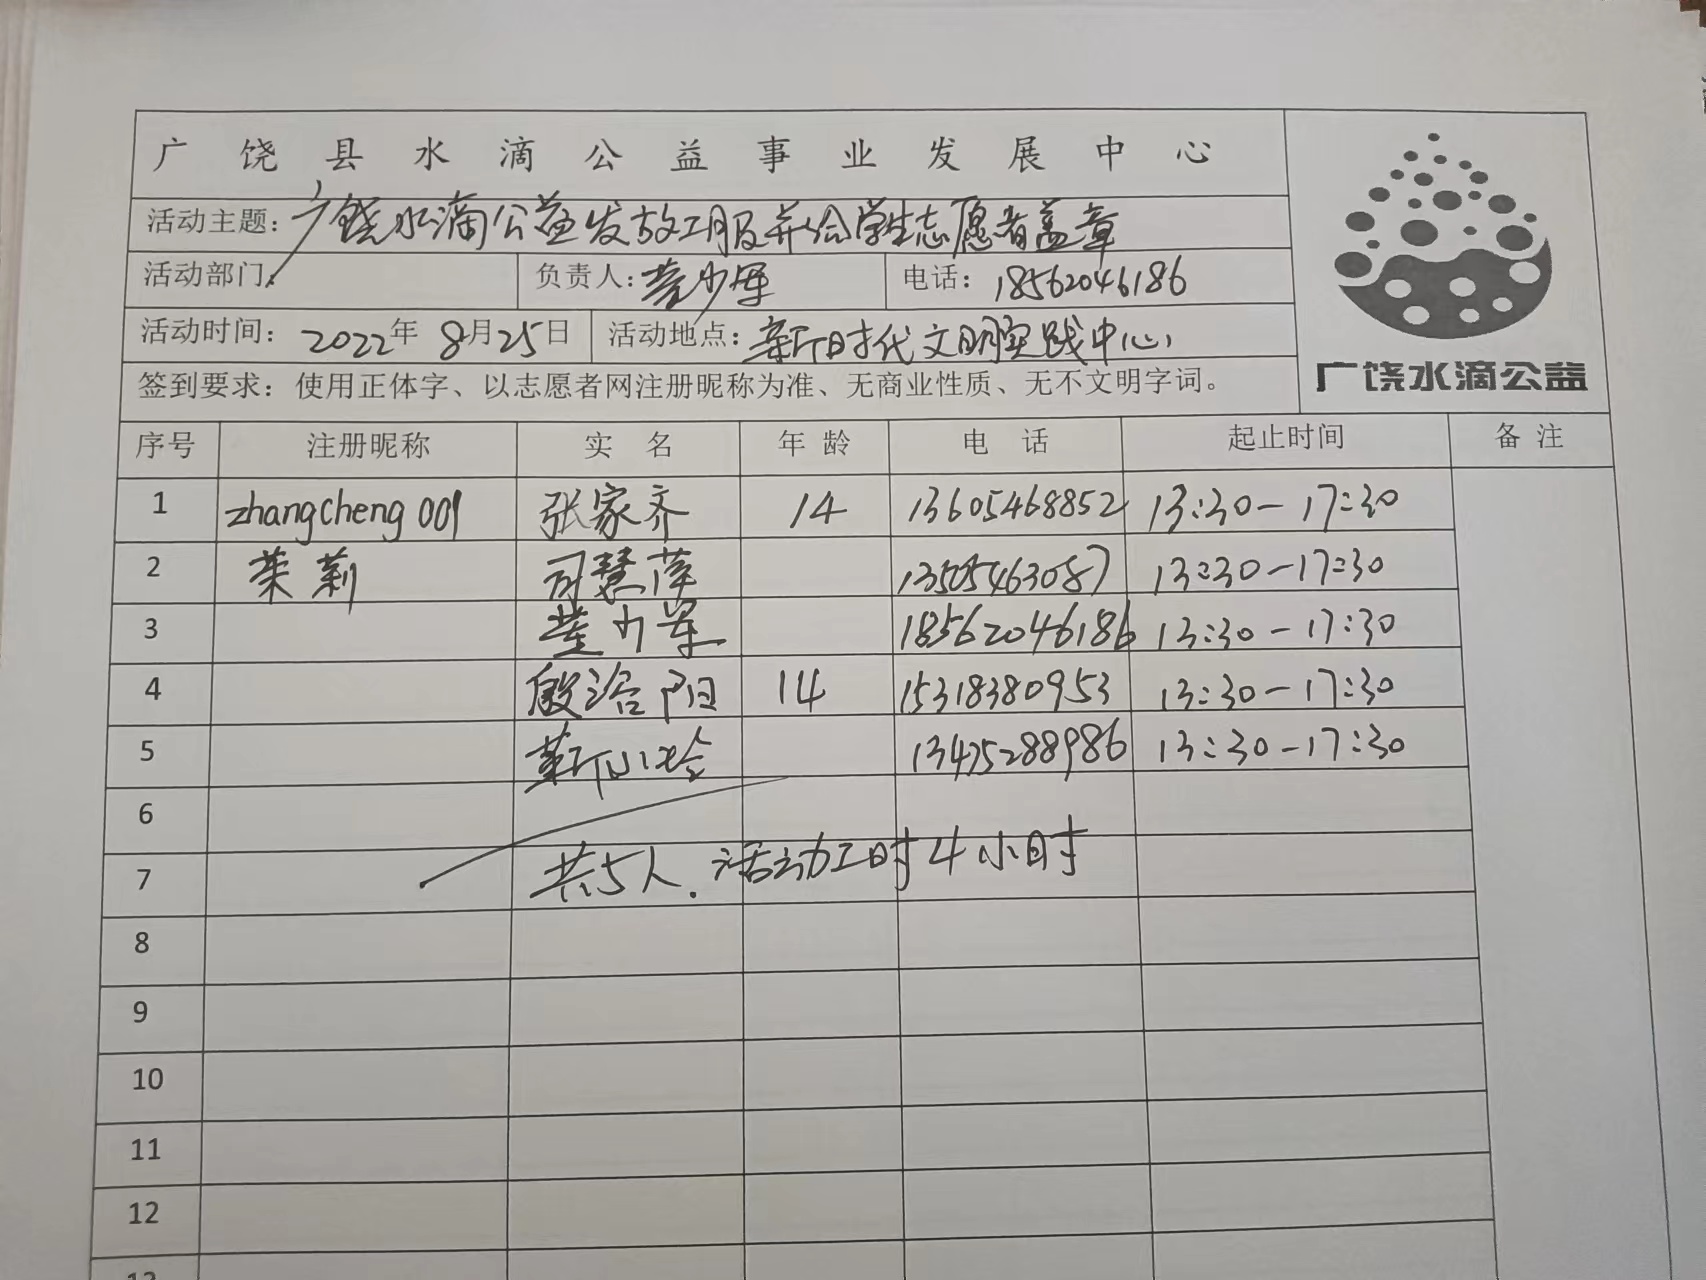 广饶县水滴公益事业发展中心
活动主题：广饶水滴公益发放工服并给学生志愿者盖章
活动部门： 负责人：董少军 电话：18562046186
活动时间：2022年8月25日 活动地点：新时代文明实践中心
签到要求：使用正体字、以志愿者网注册昵称为准、无商业性质、无不文明字词。
广饶水滴公益
序号 注册昵称 实名 年龄 电话 起止时间 备注
1 zhangcheng001 张家齐 14 13605468852 13:30-17:30
2 茉莉 司慧萍 13505463087 13:30-17:30
3 董少军 18562046186 13:30-17:30
4 殷浩阳 14 15318380953 13:30-17:30
5 靳小玲 13475288986 13:30-17:30
6
7 共5人.活动工时4小时
8
9
10
11
12
13